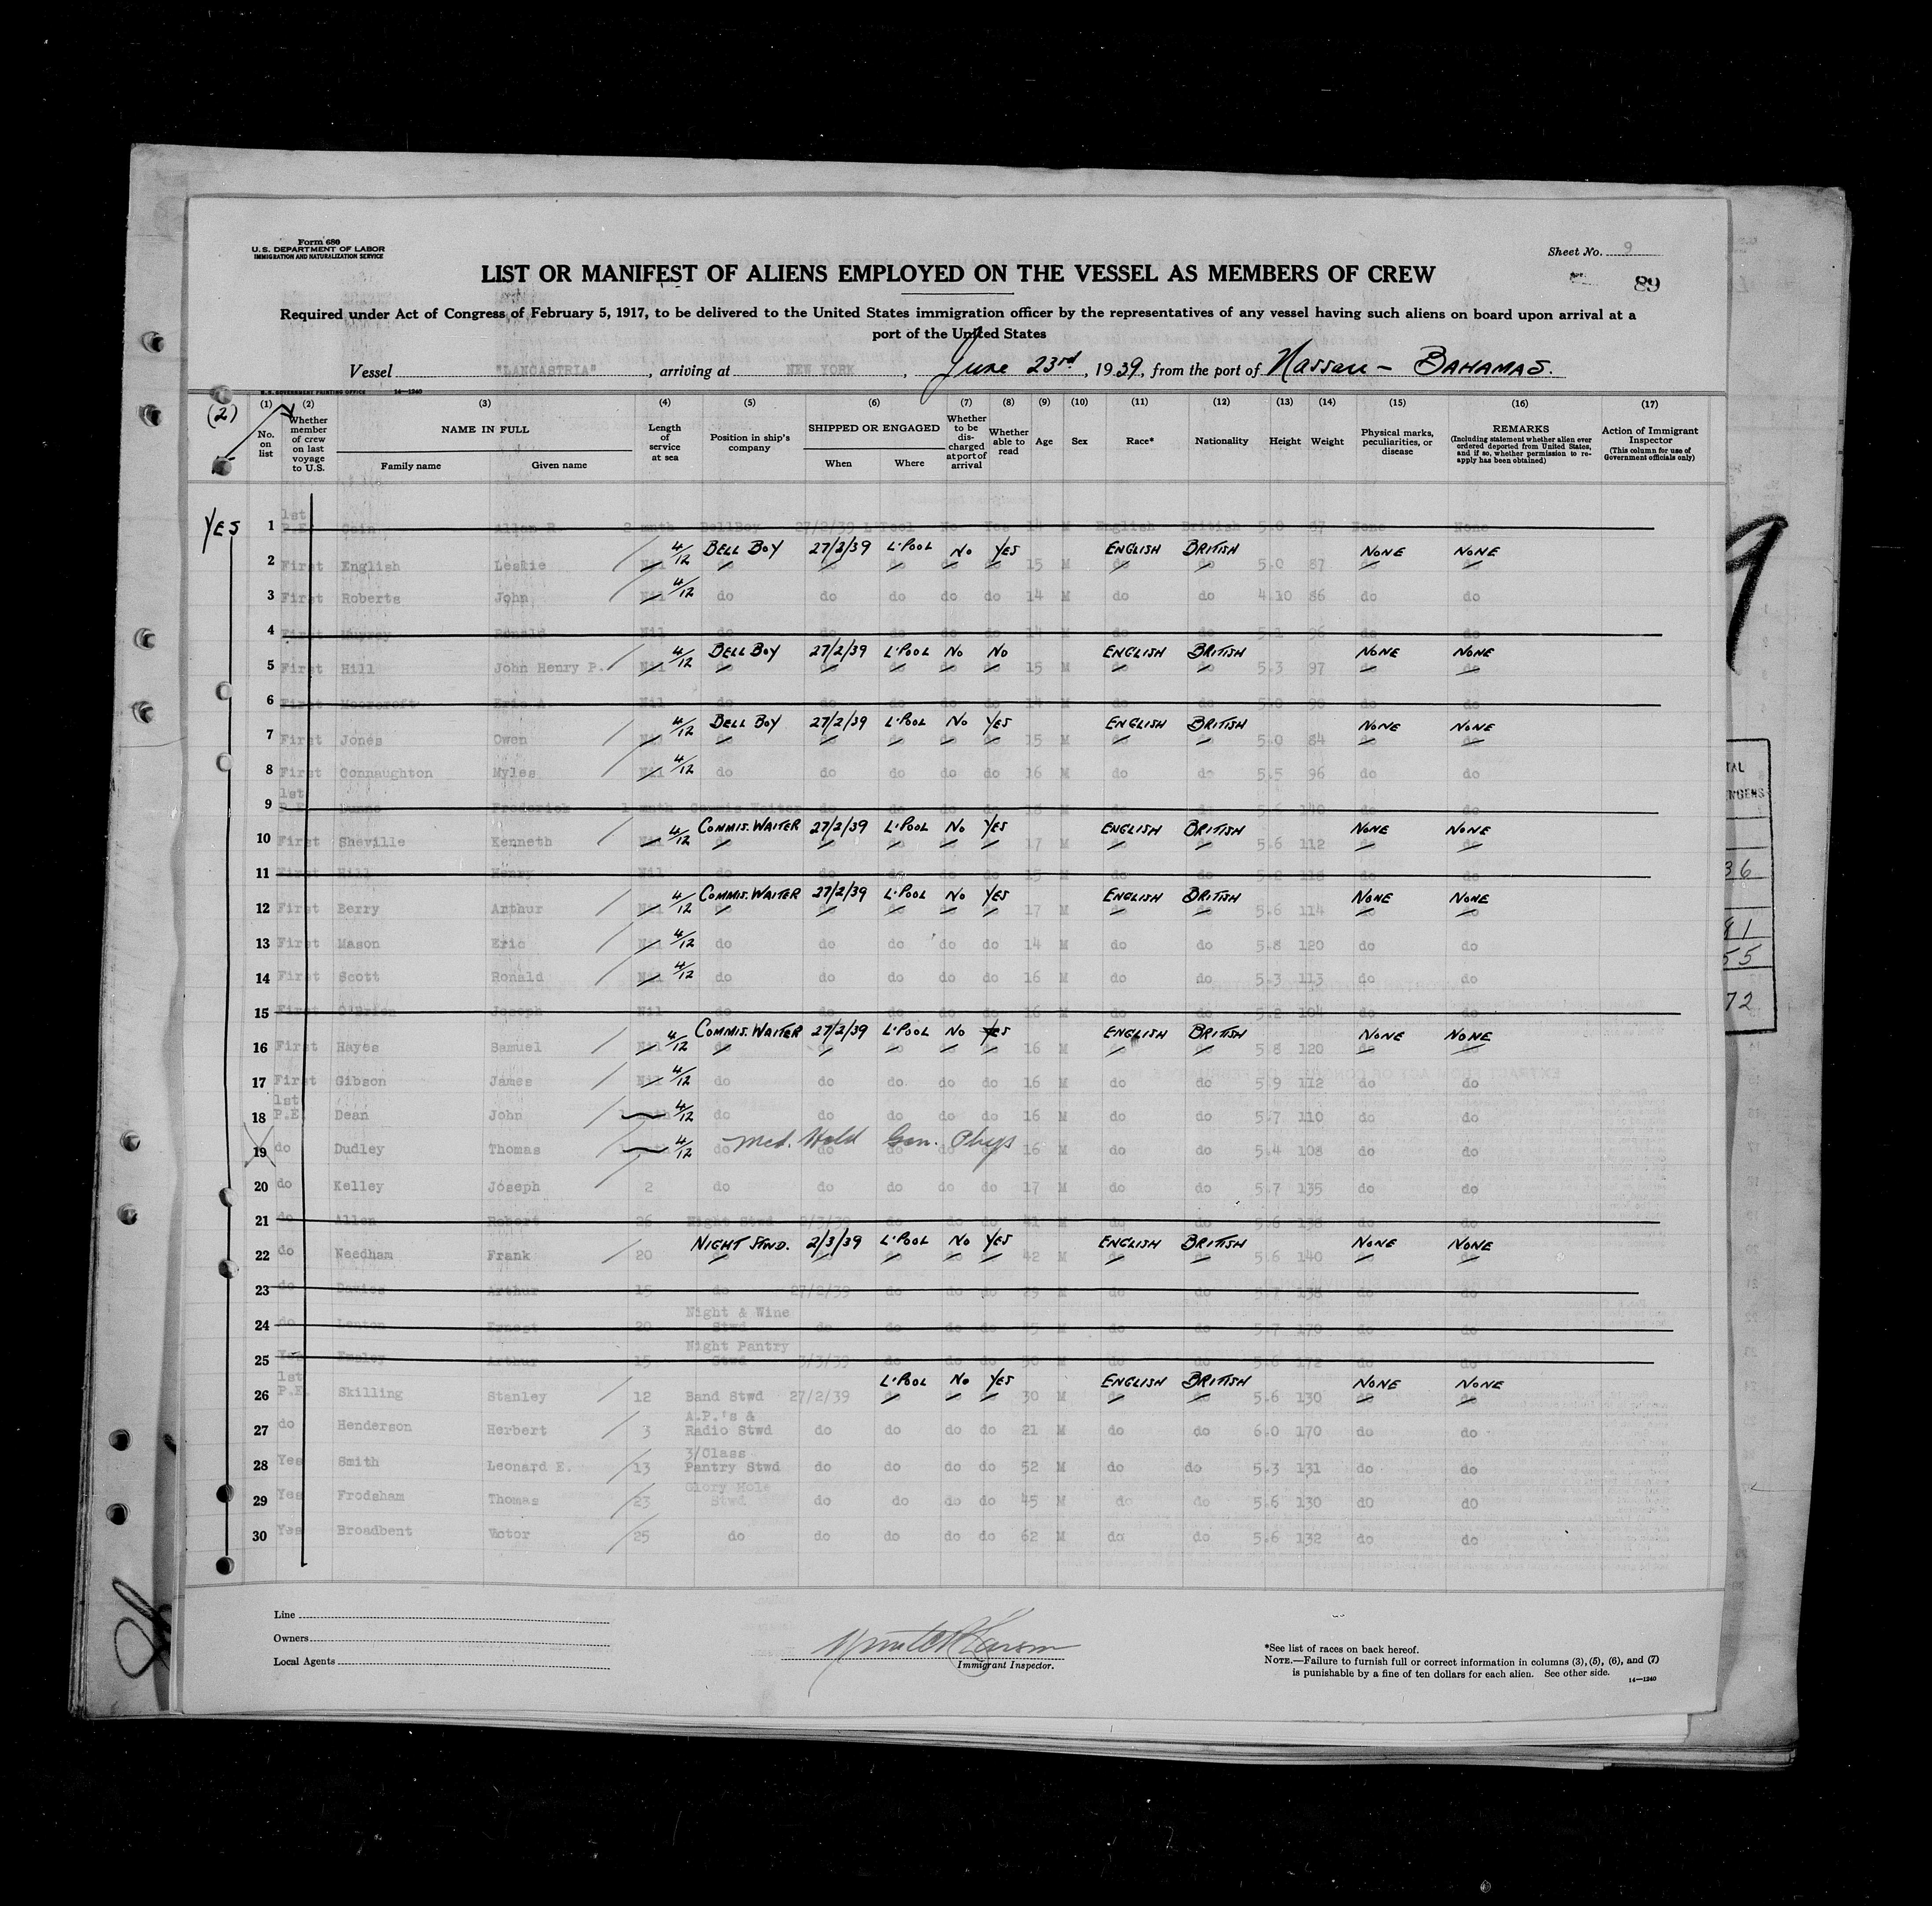 Form 680
U. S. DEPARTMENT OF LABOR
IMMIGRATION AND NATURALIZATION SERVICE
Sheet No. 9
89
LIST OR MANIFEST OF ALIENS EMPLOYED ON THE VESSEL AS MEMBERS OF CREW
Required under Act of Congress of February 5, 1917, to be delivered to the United States immigration officer by the representatives of any vessel having such aliens on board upon arrival at a
port of the United States
Vessel "LANCASTRIA", arriving at NEW YORK, June 23rd, 1939, from the port of Nassau - BAHAMAS.
U. S. GOVERNMENT PRINTING OFFICE 14—1240
(2) (1) (2) (3) (4) (5) (6) (7) (8) (9) (10) (11) (12) (13) (14) (15) (16) (17)
No. on list
Whether member of crew on last voyage to U.S.
NAME IN FULL
Family name Given name
Length of service at sea
Position in ship's company
SHIPPED OR ENGAGED
When Where
Whether to be discharged at port of arrival
Whether able to read
Age Sex Race* Nationality Height Weight
Physical marks, peculiarities, or disease
REMARKS
(Including statement whether alien ever ordered deported from United States, and if so, whether permission to reapply has been obtained)
Action of Immigrant Inspector
(This column for use of Government officials only)
YES
1 1st P.E. Allan R. 2 mnth BellBoy 27/2/39 L'Pool No Yes 14 M English British 5.0 None None
4/12 BELL BOY 27/2/39 L'POOL No YES ENGLISH BRITISH NONE NONE
2 First English Leslie Nil do do do do do 15 M do do 5.0 87 do do
3 First Roberts John Nil 4/12 do do do do do 14 M do do 4.10 86 do do
4 First Ronald Nil do do do do do 14 M do do 5.1 96 do do
4/12 BELL BOY 27/2/39 L'POOL No No ENGLISH BRITISH NONE NONE
5 First Hill John Henry P. Nil do do do do do 15 M do do 5.3 97 do do
6 First Moorcroft Eric A. Nil do do do do do 14 M do do 5.0 90 do do
4/12 BELL BOY 27/2/39 L'POOL No YES ENGLISH BRITISH NONE NONE
7 First Jones Owen Nil do do do do do 15 M do do 5.0 84 do do
8 First Connaughton Myles Nil 4/12 do do do do do 16 M do do 5.5 96 do do
9 1st P.E. Frederick 1 mnth Commis.Waiter do do do do M do do 5.6 140 do do
4/12 COMMIS. WAITER 27/2/39 L'POOL No YES ENGLISH BRITISH NONE NONE
10 First Sheville Kenneth Nil do do do do do 17 M do do 5.6 112 do do
11 First Hill Henry Nil do do do do do 15 M do do do do
4/12 COMMIS. WAITER 27/2/39 L'POOL No YES ENGLISH BRITISH NONE NONE
12 First Berry Arthur Nil do do do do do 17 M do do 5.6 114 do do
13 First Mason Eric Nil 4/12 do do do do do 14 M do do 5.8 120 do do
14 First Scott Ronald Nil 4/12 do do do do do 16 M do do 5.3 113 do do
15 First O'Brien Joseph Nil do do do do do 16 M do do 5.2 104 do do
4/12 COMMIS. WAITER 27/2/39 L'POOL No YES ENGLISH BRITISH NONE NONE
16 First Hayes Samuel Nil do do do do do 16 M do do 5.8 120 do do
17 First Gibson James Nil 4/12 do do do do do 16 M do do 5.9 112 do do
18 1st P.E. Dean John 4/12 do do do do do 16 M do do 5.7 110 do do
19 do Dudley Thomas 4/12 do do do do do 16 M do do 5.4 108 do do
Med. Hold Gen. Phys
20 do Kelley Joseph 2 do do do do do 17 M do do 5.7 135 do do
21 do Allen Robert 26 Night Stwd 2/3/39 do do do 41 M do do 5.6 138 do do
NIGHT STWD. 2/3/39 L'POOL No YES ENGLISH BRITISH NONE NONE
22 do Needham Frank 20 do do do do do 42 M do do 5.6 140 do do
23 do Davies Arthur 15 do 27/2/39 do do do 29 M do do 5.7 138 do do
24 do Ernest 20 Night & Wine Stwd do do do do 45 M do do 5.7 170 do do
25 Yes Arthur 15 Night Pantry Stwd 3/3/39 do do do 50 M do do 5.6 172 do do
L'POOL No YES ENGLISH BRITISH NONE NONE
26 1st P.E. Skilling Stanley 12 Band Stwd 27/2/39 do do do 30 M do do 5.6 130 do do
27 do Henderson Herbert 3 A.P.'s & Radio Stwd do do do do 21 M do do 6.0 170 do do
28 Yes Smith Leonard E. 13 3/Class Pantry Stwd do do do do 52 M do do 5.3 131 do do
29 Yes Frodsham Thomas 23 Glory Hole Stwd do do do do 45 M do do 5.6 130 do do
30 Yes Broadbent Victor 25 do do do do do 62 M do do 5.6 132 do do
Line
Owners
Local Agents
Immigrant Inspector.
*See list of races on back hereof.
NOTE.—Failure to furnish full or correct information in columns (3), (5), (6), and (7)
is punishable by a fine of ten dollars for each alien. See other side.
14—1240